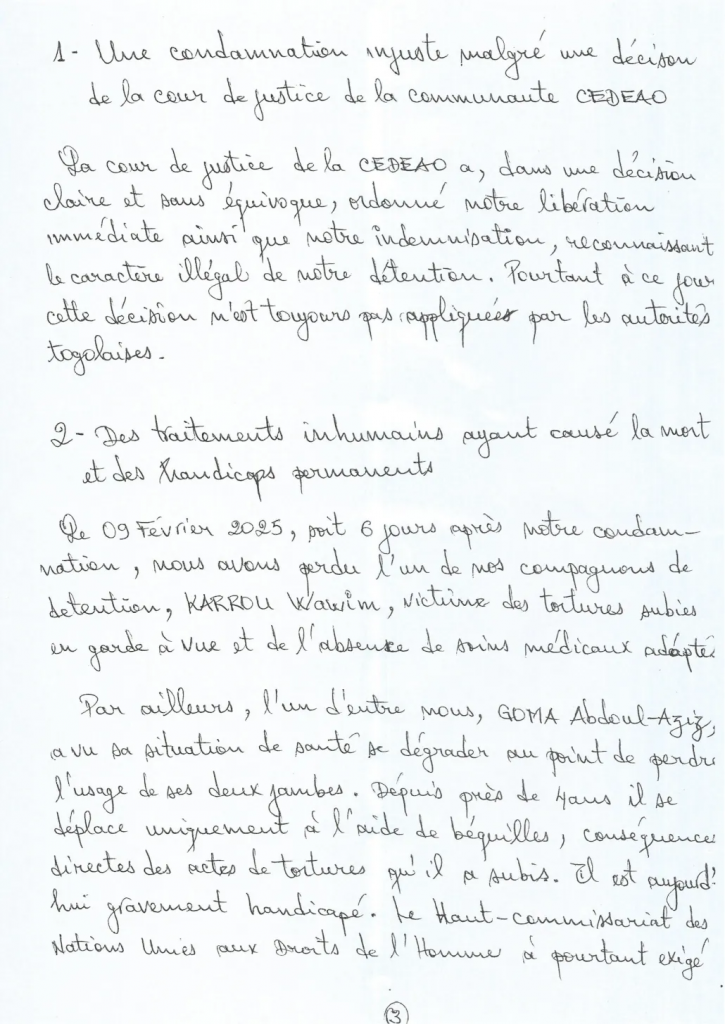 1- Une condamnation injuste malgré une décison
de la cour de justice de la communaute CEDEAO
La cour de justice de la CEDEAO a, dans une décision
claire et sans équivoque, ordonné notre libération
immédiate ainsi que notre indemnisation, reconnaissant
le caractère illégal de notre détention. Pourtant à ce jour
cette décision n'est toujours pas appliquées par les autorités
togolaises.
2- Des traitements inhumains ayant causé la mort
et des handicaps permanents
Le 09 Février 2025, soit 6 jours après notre condam-
nation, nous avons perdu l'un de nos compagnons de
detention, KARROU Wawim, victime des tortures subies
en garde à vue et de l'absence de soins médicaux adaptés
Par ailleurs, l'un d'entre nous, GOMA Abdoul-Aziz,
a vu sa situation de santé se dégrader au point de perdre
l'usage de ses deux jambes. Dépuis près de 4ans il se
déplace uniquement à l'aide de béquilles, conséquences
directes des actes de tortures qu'il a subis. Il est aujourd'
hui gravement handicapé. Le Haut-commissariat des
Nations Unies aux Droits de l'Homme à pourtant exigé
3